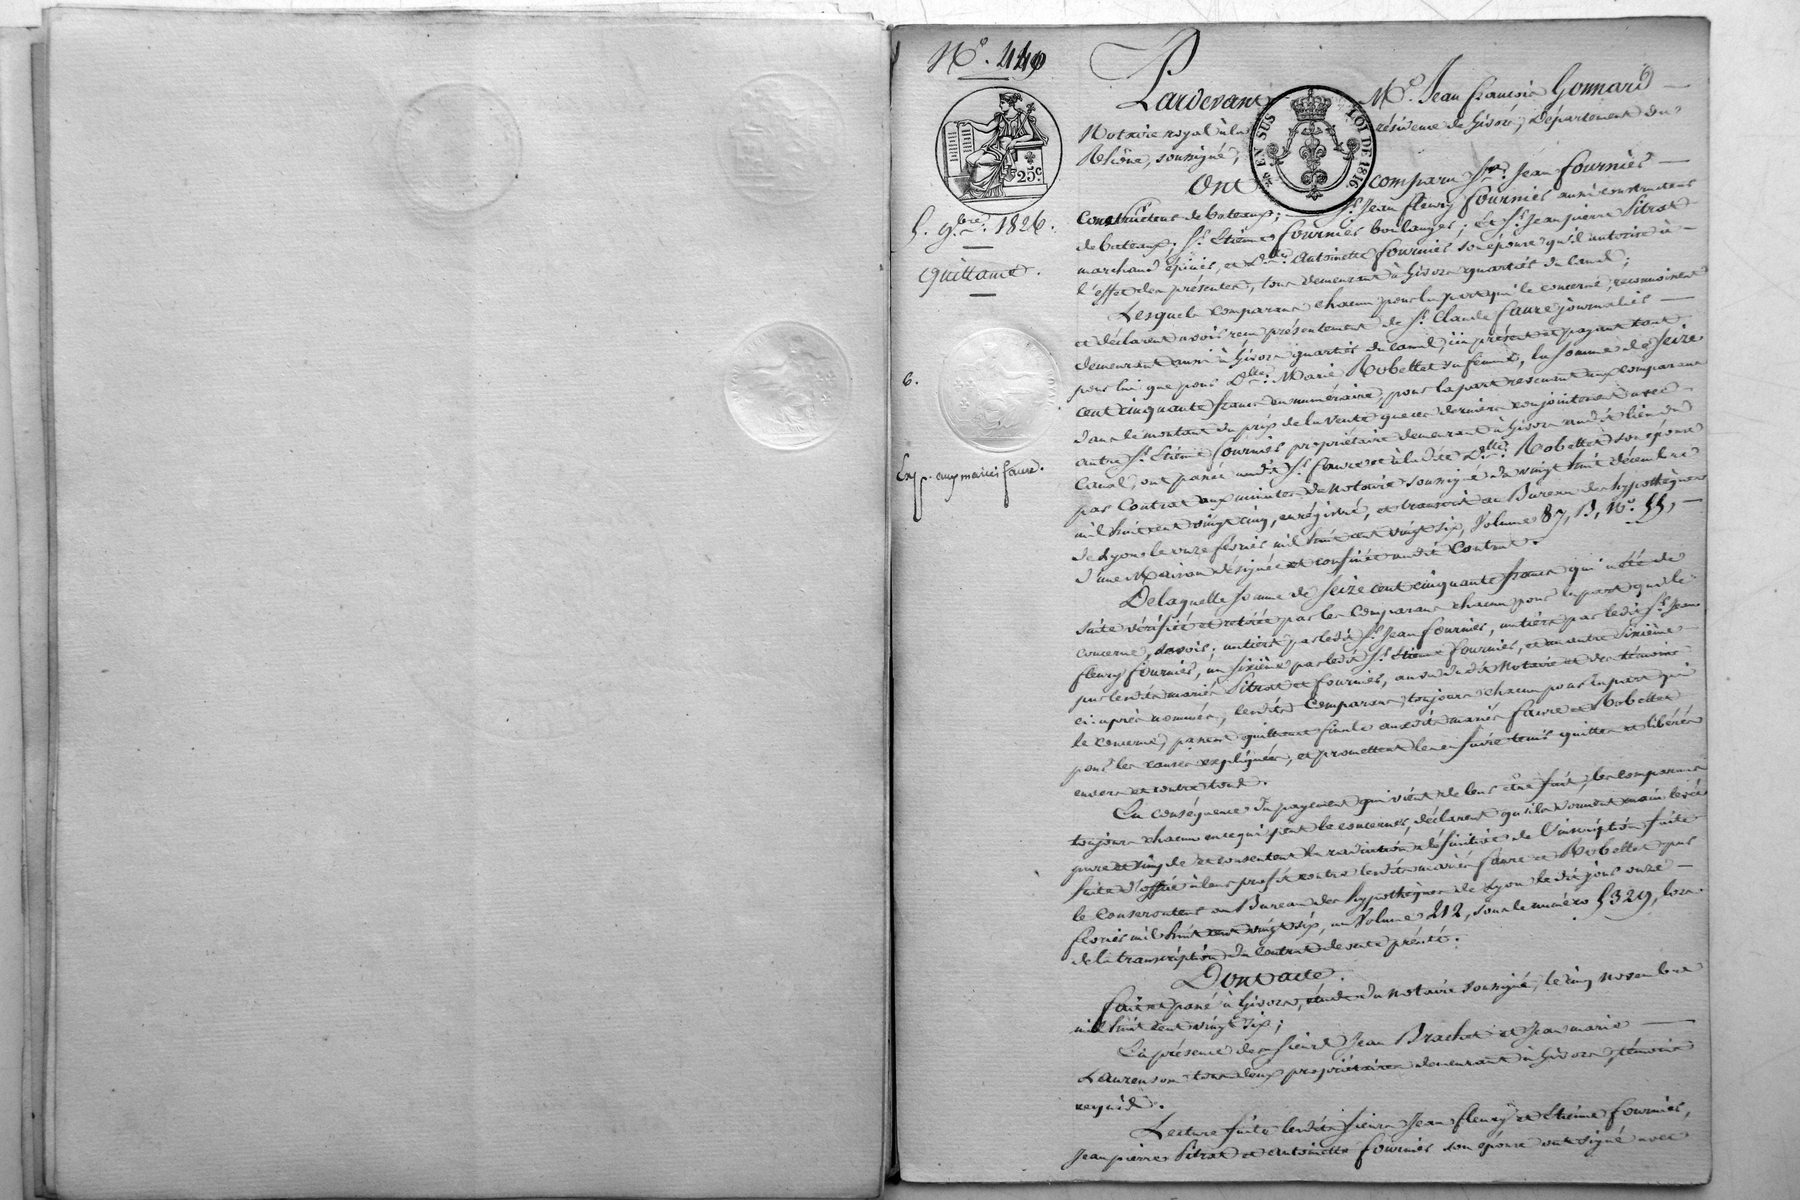 N.º 440
25.c
5. 9.bre 1826.
Quittance.
6.
Exp. aux mariés faure.
EN SUS
LOI DE 1816
Pardevant M.e Jean françois Gonnard
Notaire royal à la résidence de Givors, département du
Rhône, soussigné,
Ont comparu S.r Jean fournier
Constructeur de bateaux; S.r Jean fleury fournier aussi constructeur
de bateaux; S.r Etienne fournier boulanger; Et S.r Jean pierre Pitrat
marchand épicier, et D.me Antoinette fournier son épouse qu'il autorise à
l'effet des présentes, tous demeurant à Givors quartier du Canal;
Lesquels comparans chacun pour la part qui le concerne, reconnoissent
et déclarent avoir reçu présentement de S.r Claude faure journalier
demeurant aussi à Givors quartier du canal, ici présent et payant tant
pour lui que pour D.lle Marie Robellet sa femme, la somme de Seize
cent cinquante francs en numéraire, pour la part revenant aux comparans
dans le montant du prix de la vente que ces derniers conjointement avec
autre S.r Etienne fournier propriétaire demeurant à Givors audit lieu du
Canal, ont passée audit S.r faure et à ladite D.lle Robellet son épouse
par Contrat aux minutes du Notaire soussigné du vingt huit décembre
mil huit cent vingt cinq, enregistré, et transcrit au Bureau des hypothèques
de Lyon le onze février mil huit cent vingt six, Volume 87, B, N.º 55,
d'une Maison désignée et confinée audit Contrat.
De laquelle somme de Seize cent cinquante francs qui a été de
suite vérifiée et retirée par les Comparans chacun pour la part qui le
concerne, savoir; un tiers par ledit S.r Jean fournier, un tiers par ledit S.r Jean
fleury fournier, un sixième par ledit S.r Etienne fournier, et un autre sixième
par lesdits mariés Pitrat et fournier, au vu dudit Notaire et des témoins
ci-après nommés, lesdits Comparans, toujours chacun pour la part qui
le concerne, passent quittance finale auxdits mariés faure et Robellet
pour les causes expliquées, et promettent les en faire tenir quittes et libérés
envers et contre tous.
En conséquence du payement qui vient de leur être fait, les comparans
toujours chacun en ce qui peut le concerner, déclarent qu'ils donnent main levée
pure et simple et consentent la radiation définitive de l'inscription faite
faite d'office à leur profit contre lesdits mariés faure et Robellet par
le Conservateur au Bureau des hypothèques de Lyon ledit jour onze
février mil huit cent vingt six, au Volume 212, sous le numéro 5329, lors
de la transcription du contrat de vente précité.
Dont acte.
fait et passé à Givors, étude du notaire soussigné, le cinq novembre
mil huit cent vingt six;
En présence des sieurs Jean Brachet et Jean marie
Laurenson tous deux propriétaires demeurant à Givors, témoins
requis.
Lecture faite lesdits sieurs Jean fleury et Etienne fournier,
Jean pierre Pitrat et Antoinette fournier son épouse ont signé avec